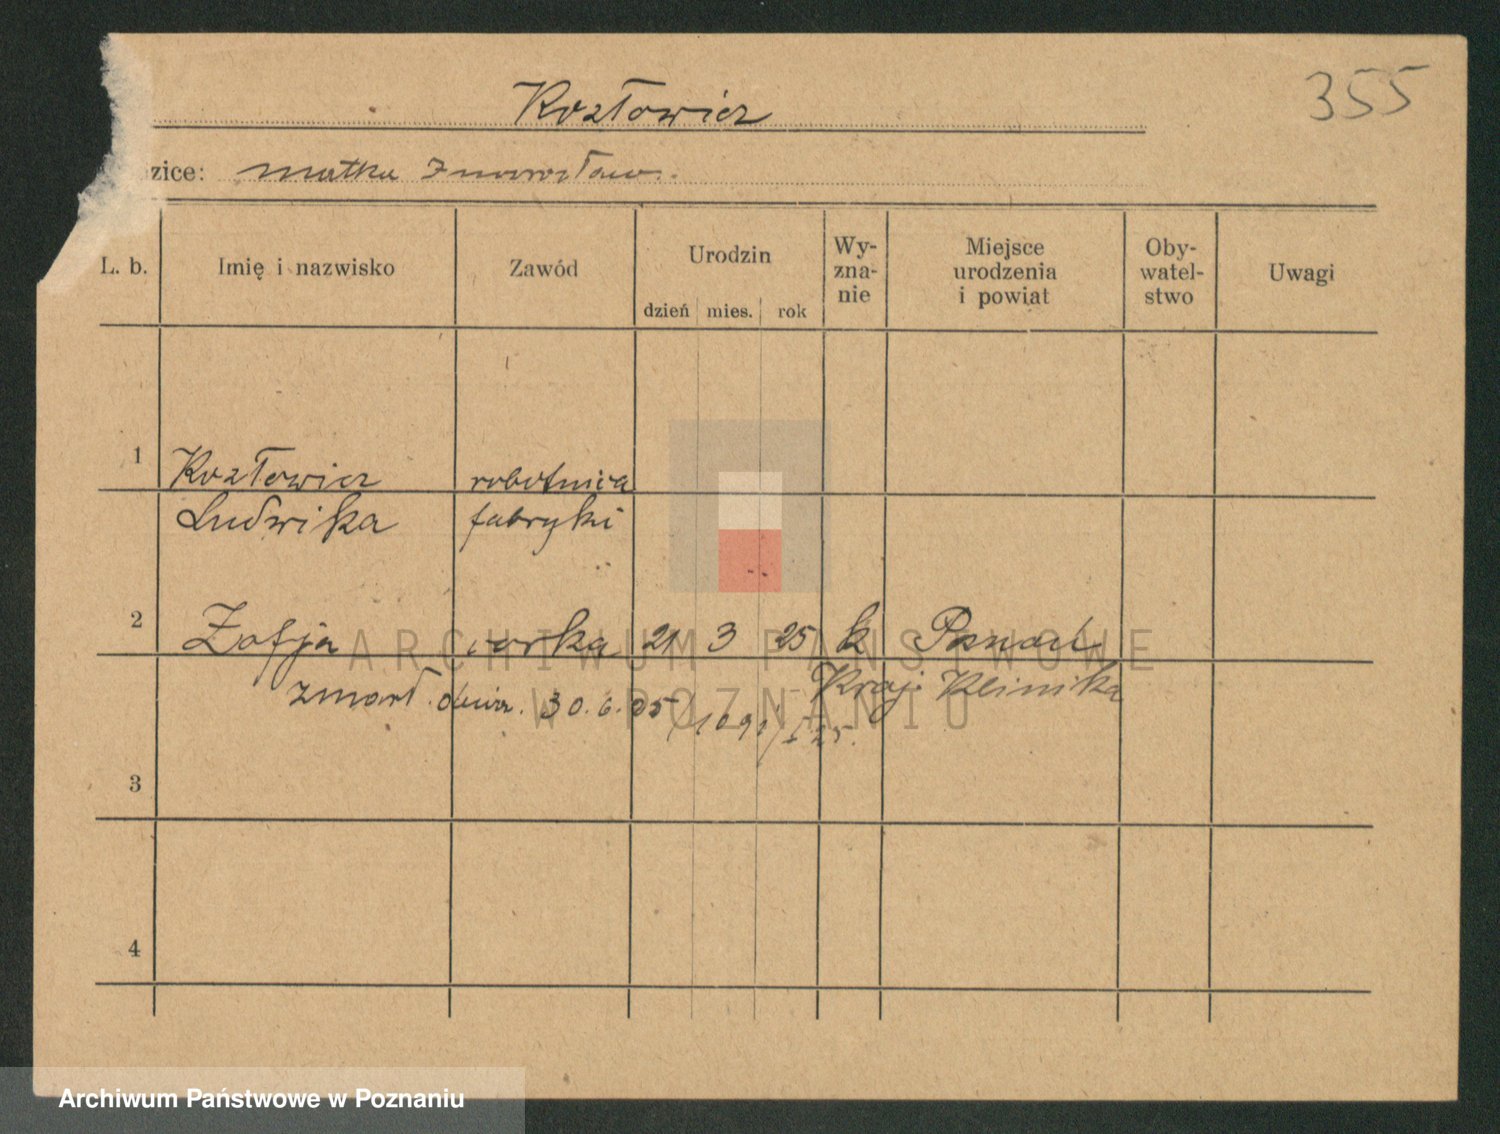 355
Kozłowicz
zice: matka
L. b. Imię i nazwisko Zawód Urodzin dzień mies. rok Wy-zna-nie Miejsce urodzenia i powiat Oby-watel-stwo Uwagi
1 Kozłowicz robotnica
Ludwika fabryki
2 Zofja corka 21 3 25 k Poznań
Kraj. Klinika
zmarł. 30.6.25
3
4
ARCHIWUM PAŃSTWOWE
W POZNANIU
Archiwum Państwowe w Poznaniu